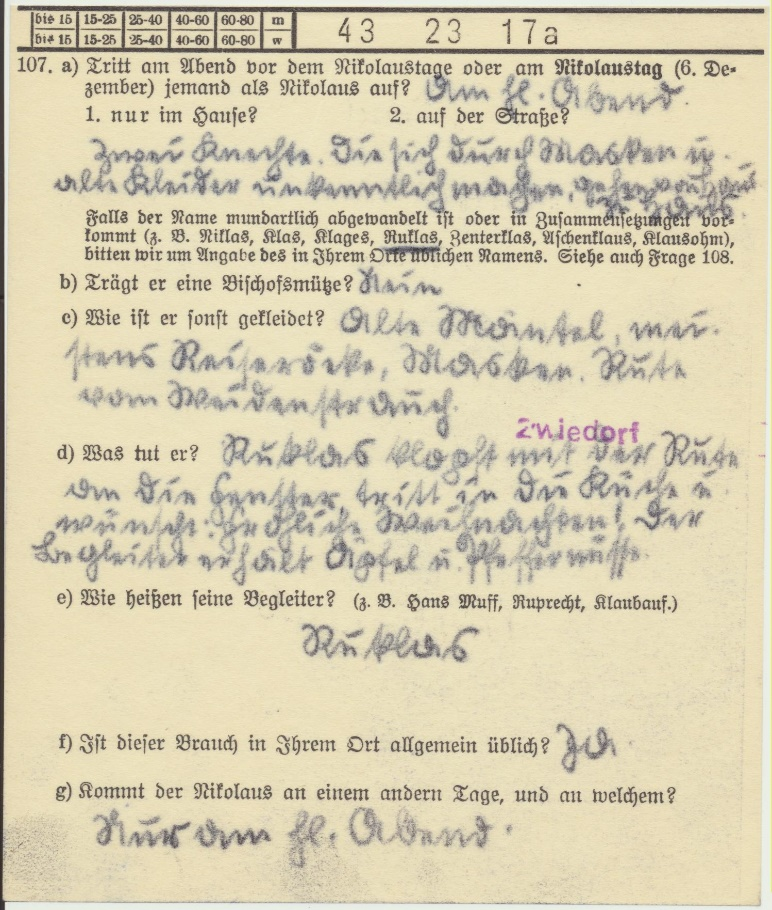 bis 15 15-25 25-40 40-60 60-80 m
bis 15 15-25 25-40 40-60 60-80 w
43 23 17a
107. a) Tritt am Abend vor dem Nikolaustage oder am Nikolaustag (6. De-
zember) jemand als Nikolaus auf? Am hl. Abend.
1. nur im Hause? 2. auf der Straße?
Zwei Knechte. Die sich durch Masken u.
alte Kleider unkenntlich machen, gehen von Haus
zu Haus.
Falls der Name mundartlich abgewandelt ist oder in Zusammensetzungen vor-
kommt (z. B. Niklas, Klas, Klages, Ruklas, Zenterklas, Aschenklaus, Klausohm),
bitten wir um Angabe des in Ihrem Orte üblichen Namens. Siehe auch Frage 108.
b) Trägt er eine Bischofsmütze? Nein
c) Wie ist er sonst gekleidet? Alte Mäntel, mei-
stens Reiseröcke, Masken. Rute
vom Weidenstrauch.
Zwiedorf
d) Was tut er? Ruklas klopft mit der Rute
an die Fenster, tritt in die Küche u.
wünscht: Fröhliche Weihnachten! Der
Begleiter erhält Äpfel u. Pfeffernüsse.
e) Wie heißen seine Begleiter? (z. B. Hans Muff, Ruprecht, Klaubauf.)
Ruklas
f) Ist dieser Brauch in Ihrem Ort allgemein üblich? Ja.
g) Kommt der Nikolaus an einem andern Tage, und an welchem?
Nur am hl. Abend.